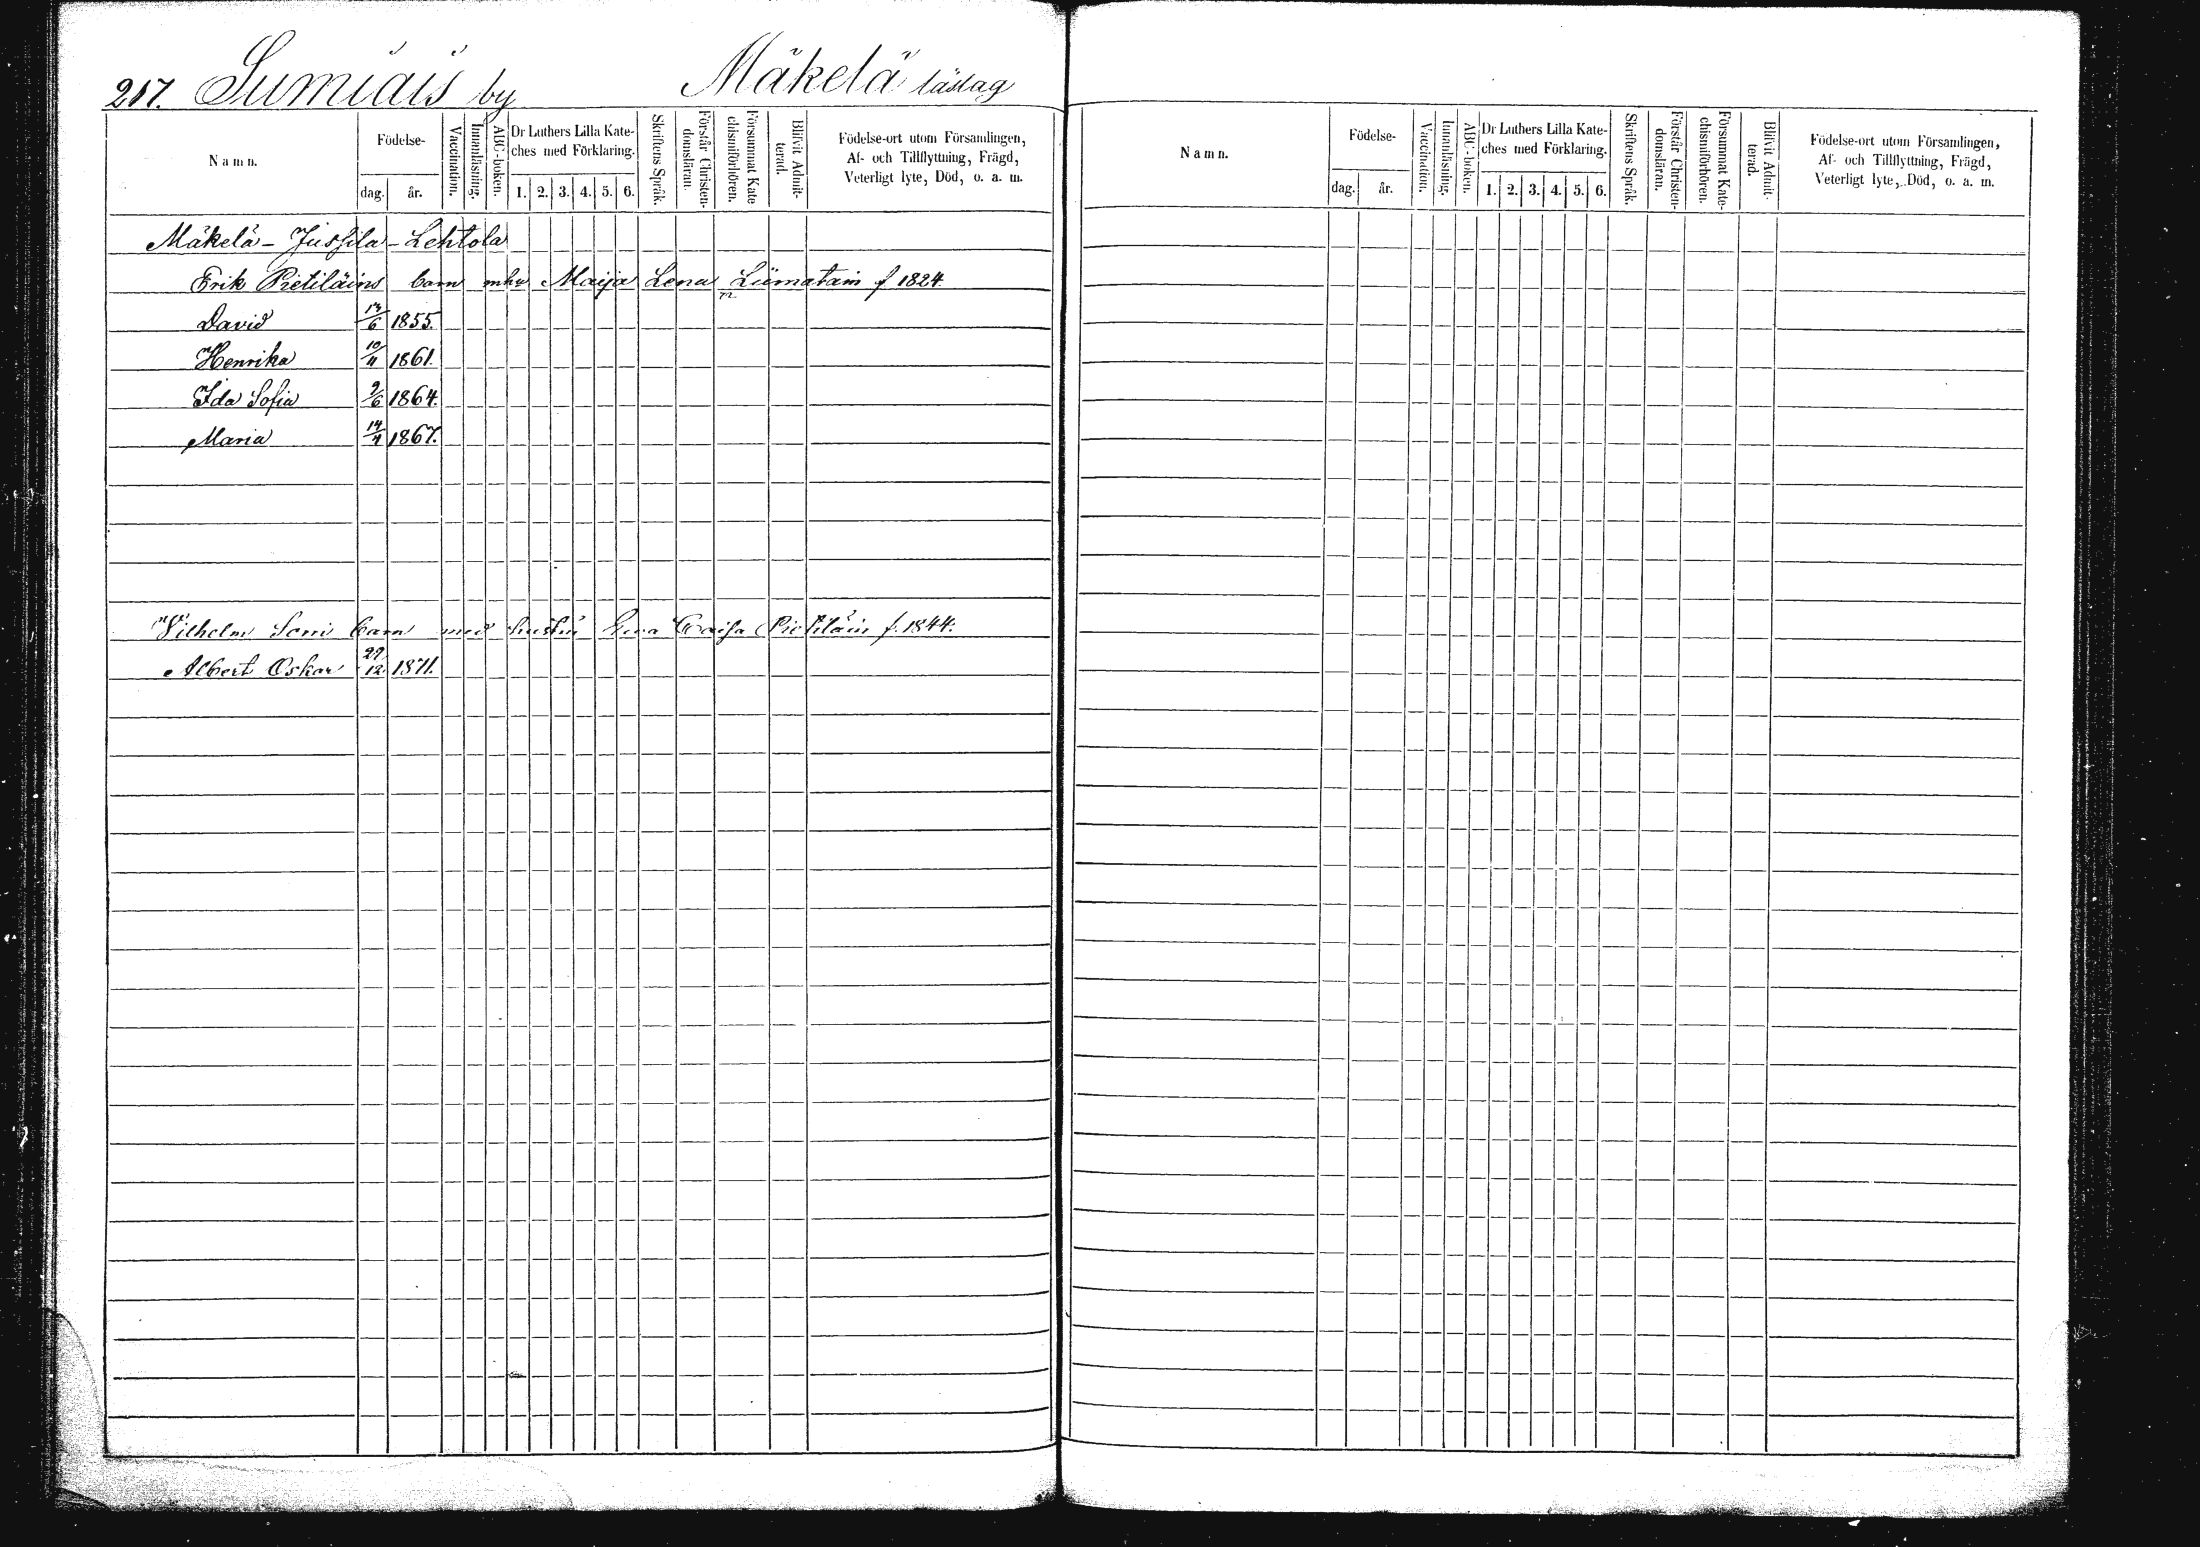 217. Sumiais by Mäkelä läslag
Namn. Födelse- dag. år. Vaccination. Innanläsning. ABC-boken. Dr Luthers Lilla Kateches med Förklaring. 1. 2. 3. 4. 5. 6. Skriftens Språk. Förstår Christendomsläran. Försummat Katechismiförhören. Blifvit Admitterad. Födelse-ort utom Församlingen, Af- och Tillflyttning, Frägd, Veterligt lyte, Död, o. a. m.
Mäkelä - Jussila - Lehtola
Erik Pietiläins barn mhu Maija Lena Liimatain f 1824
David 13/6 1855.
Henrika 10/4 1861.
Ida Sofia 9/6 1864.
Maria 14/4 1867.
Vilhelm Soni barn med hustru Eva Caisa Pietiläin f. 1844.
Albert Oskar 29/12 1871.
Namn. Födelse- dag. år. Vaccination. Innanläsning. ABC-boken. Dr Luthers Lilla Kateches med Förklaring. 1. 2. 3. 4. 5. 6. Skriftens Språk. Förstår Christendomsläran. Försummat Katechismiförhören. Blifvit Admitterad. Födelse-ort utom Församlingen, Af- och Tillflyttning, Frägd, Veterligt lyte, Död, o. a. m.